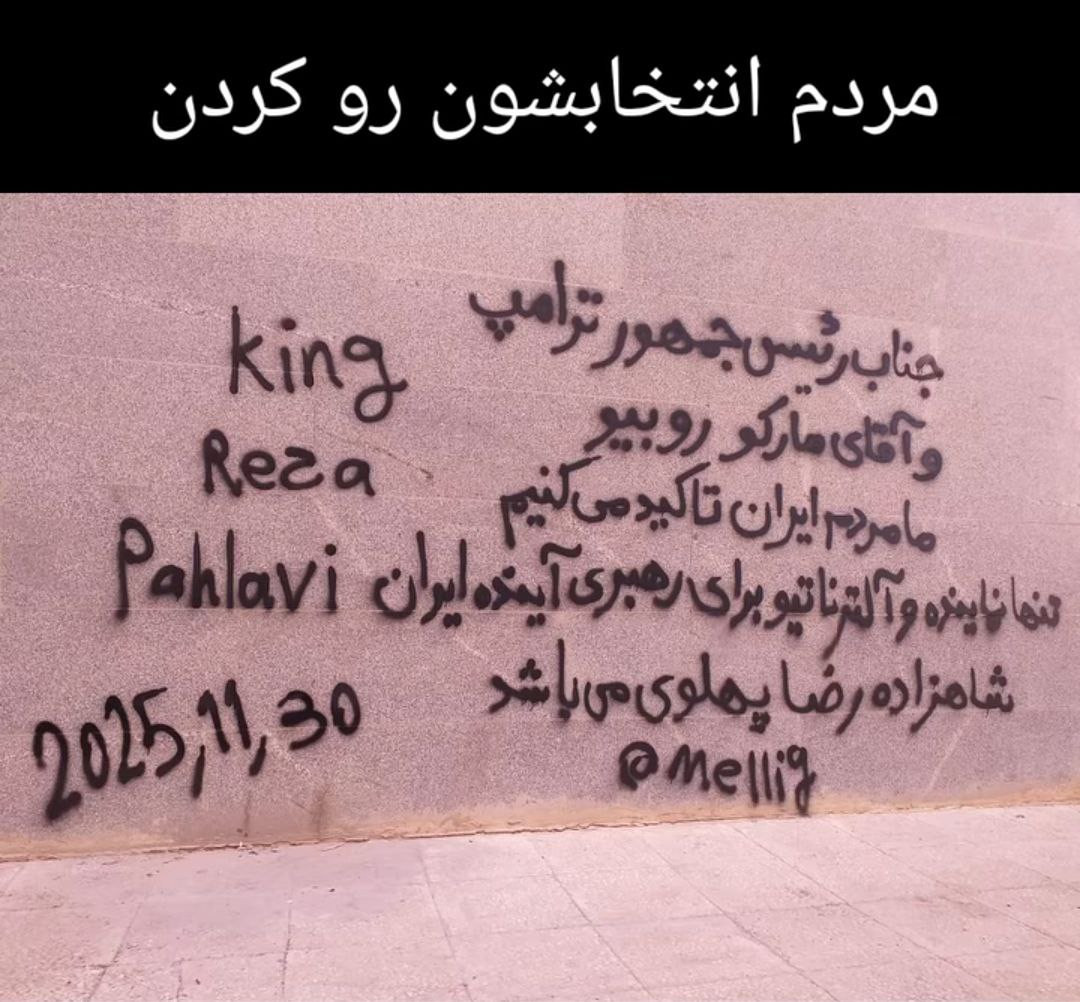 مردم انتخابشون رو کردن
جناب رئیس جمهور ترامپ
و آقای مارکو روبیو
ما مردم ایران تاکید می کنیم
تنها نماینده و آلترناتیو برای رهبری آینده ایران
شاهزاده رضا پهلوی می باشد
@Mellig
king
Reza
Pahlavi
2025,11,30